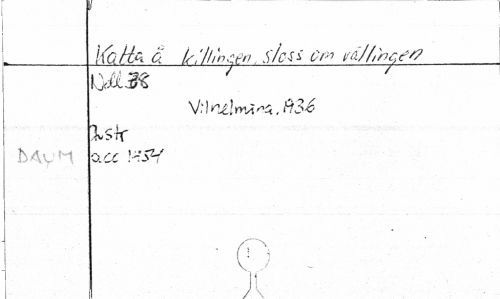 Katta å killingen, sloss om vällingen
Noll 38
Vilhelmina, 1936
Avskr
DAUM acc 1454